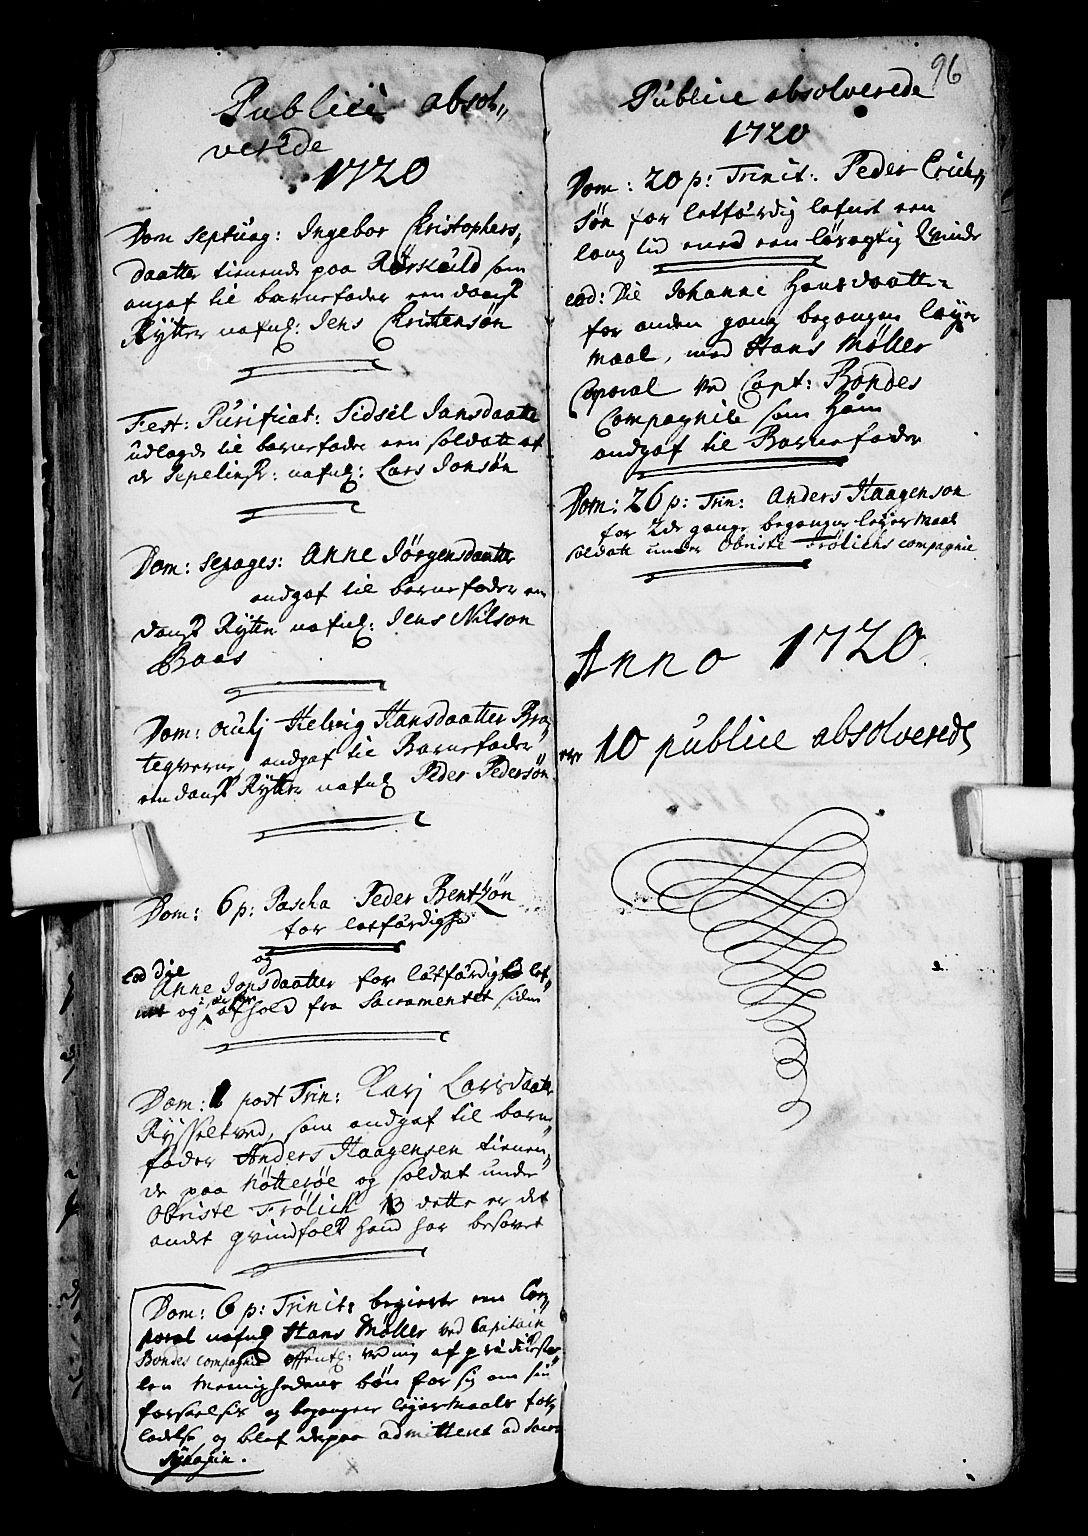 Publice absol„
verede
1720
Dom septuag: Ingebor Christophers„
daatter tienende paa Rørskuld som
angaf til barnefader een dansk
Rytter nafnl: Jens Christensøn
Fest: Purificat: Sidsil Jansdaatter
udlagde til barnefader een soldatt af
de nafnl: Lars Jonsøn
Dom: sexages: Anne Jörgensdaatter
andgaf til barnefader een
dansk Rytter nafnl: Jens Nilson
Baas
Dom: oculj Helvig Hansdaatter Bra„
tegverne, andgaf til Barnefader
een dansk Rytter nafnl Peder Pedersøn
Dom: 6 p: Pascha Peder Bentzøn
for letfærdighed
og
eod die
Anne Jonsdaatter for letfærdighed lef„
net og afhold fra Sacramentet siden
Dom: 1 post Trin: Karj Larsdaatter
som andgaf til barn„
fader Anders Haagensen tienen„
de paa Nötterøe og soldat under
Obriste Frölich NB dette er det
andet qvindfolk hand har besovet
Dom: 6 p: Trinit: begierte een Cor„
poral nafnl Hans Møller ved Capitain
Bondes compagnie offentl: ved mig af prædikesto„
len Menighedens bøn for sig om sin
forseelsis og begangene leyermaals for„
ladelse og blef derpaa admitteret ad sacra
Synaxin.
96
Publice absolverede
1720
Dom: 20 p: Trinit: Peder Erich„
søn for letfærdig lefnet een
lang tid med een løsagtig Qvinde
eod: Die Johanne Hansdaatter
for anden gang begangen leyer
maal, med Hans Møller
Coporal ved Capt: Bondes
Compagnie som hun
andgaf til Barnefader
Dom: 26 p: Trin: Anders Haagenson
for 2de gange begangen leyermaal
soldatt under Obriste Frölichs compagnie
Anno 1720
ere 10 publice absolverede